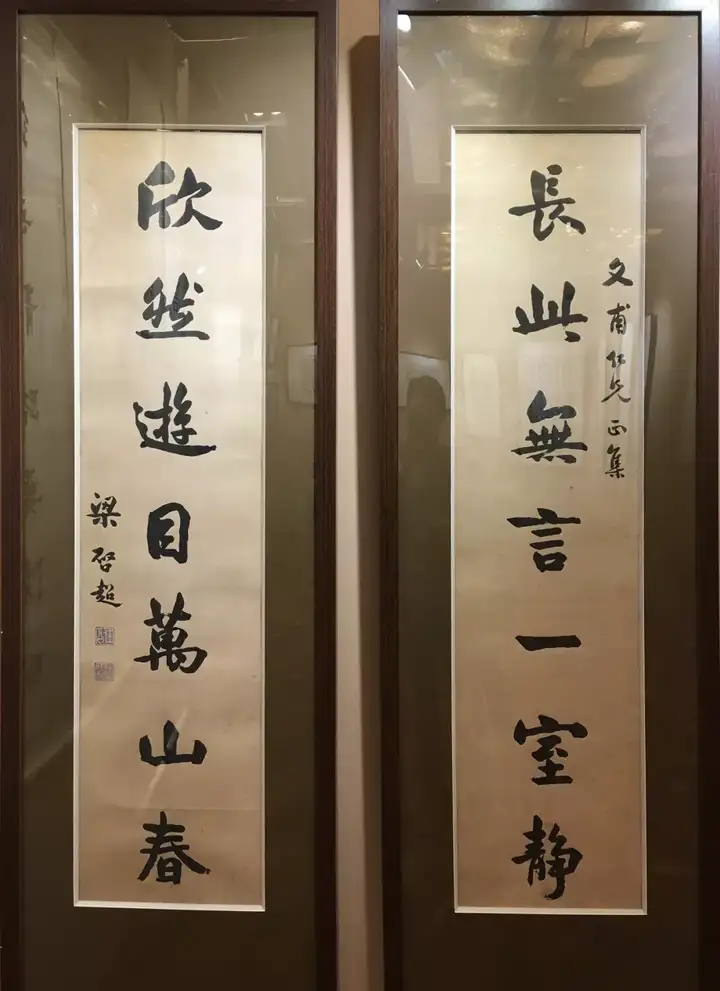 長此無言一室静
文甫仁兄正集
欣然遊目萬山春
梁啓超